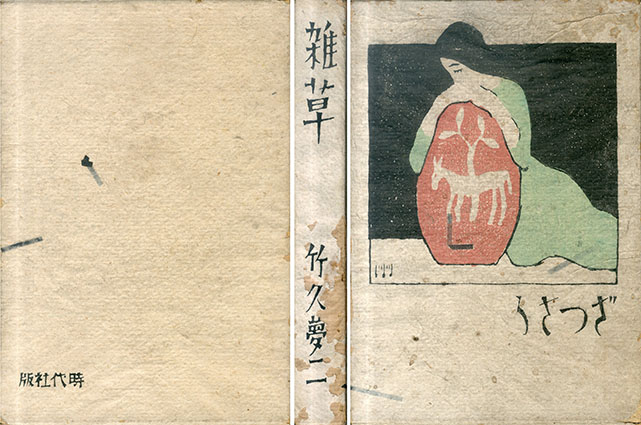 ざつさう
雑草
竹久夢二
時代社版